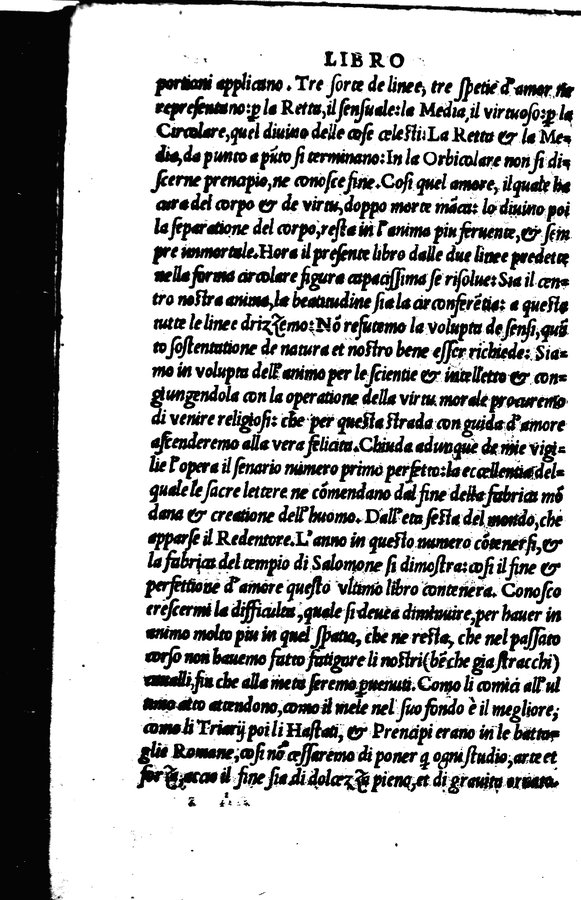 LIBRO
portioni applicano. Tre sorte de linee, tre spetie d'amor ne
representano: ꝑ la Retta, il sensuale: la Media, il virtuoso: ꝑ la
Circolare, quel diuino delle cose celesti: La Retta & la Me-
dia, da punto a pũto si terminano: In la Orbicolare non si di-
scerne principio, ne conosce fine. Cosi quel amore, il quale ha
cura del corpo & de virtu, doppo morte mãca: lo diuino poi
la separatione del corpo, resta in l'anima piu feruente, & sem
pre immortale. Hora il presente libro dalle due linee predette
nella forma circolare figura capacissima se risolue: Sia il cen-
tro nostra anima, la beatitudine sia la circonferẽtia: a questa
tutte le linee drizzemo: Nõ refutemo la volupta de sensi, quã
to sostentatione de natura et nostro bene esser richiede: Sia-
mo in volupta dell'animo per le scientie & intelletto & con-
giungendola con la operatione della virtu morale procuremo
di venire religiosi: che per questa strada con guida d'amore
ascenderemo alla vera felicita. Chiuda adunque de mie vigi-
lie l'opera il senario numero primo perfetto: la eccellentia del-
quale le sacre lettere ne cõmendano dal fine della fabrica mõ
dana & creatione dell'huomo. Dall'eta sesta del mondo, che
apparse il Redentore. L'anno in questo numero cõtenersi, &
la fabrica del tempio di Salomone si dimostra: cosi il fine &
perfettione d'amore questo vltimo libro contenera. Conosco
crescermi la difficulta, quale si deuea diminuire, per hauer in
animo molto piu in quel spatio, che ne resta, che nel passato
corso non hauemo fatto fatigare li nostri (bẽche gia stracchi)
caualli, fin che alla meta seremo puenuti. Como li comici all'ul
timo atto attendono, como il mele nel suo fondo è il megliore;
como li Triarij poi li Hastati, & Prencipi erano in le batta-
glie Romane, cosi nõ cessaremo di poner q ogni studio, arte et
forza, accio il fine sia di dolcezza pieno, et di grauita ornato.